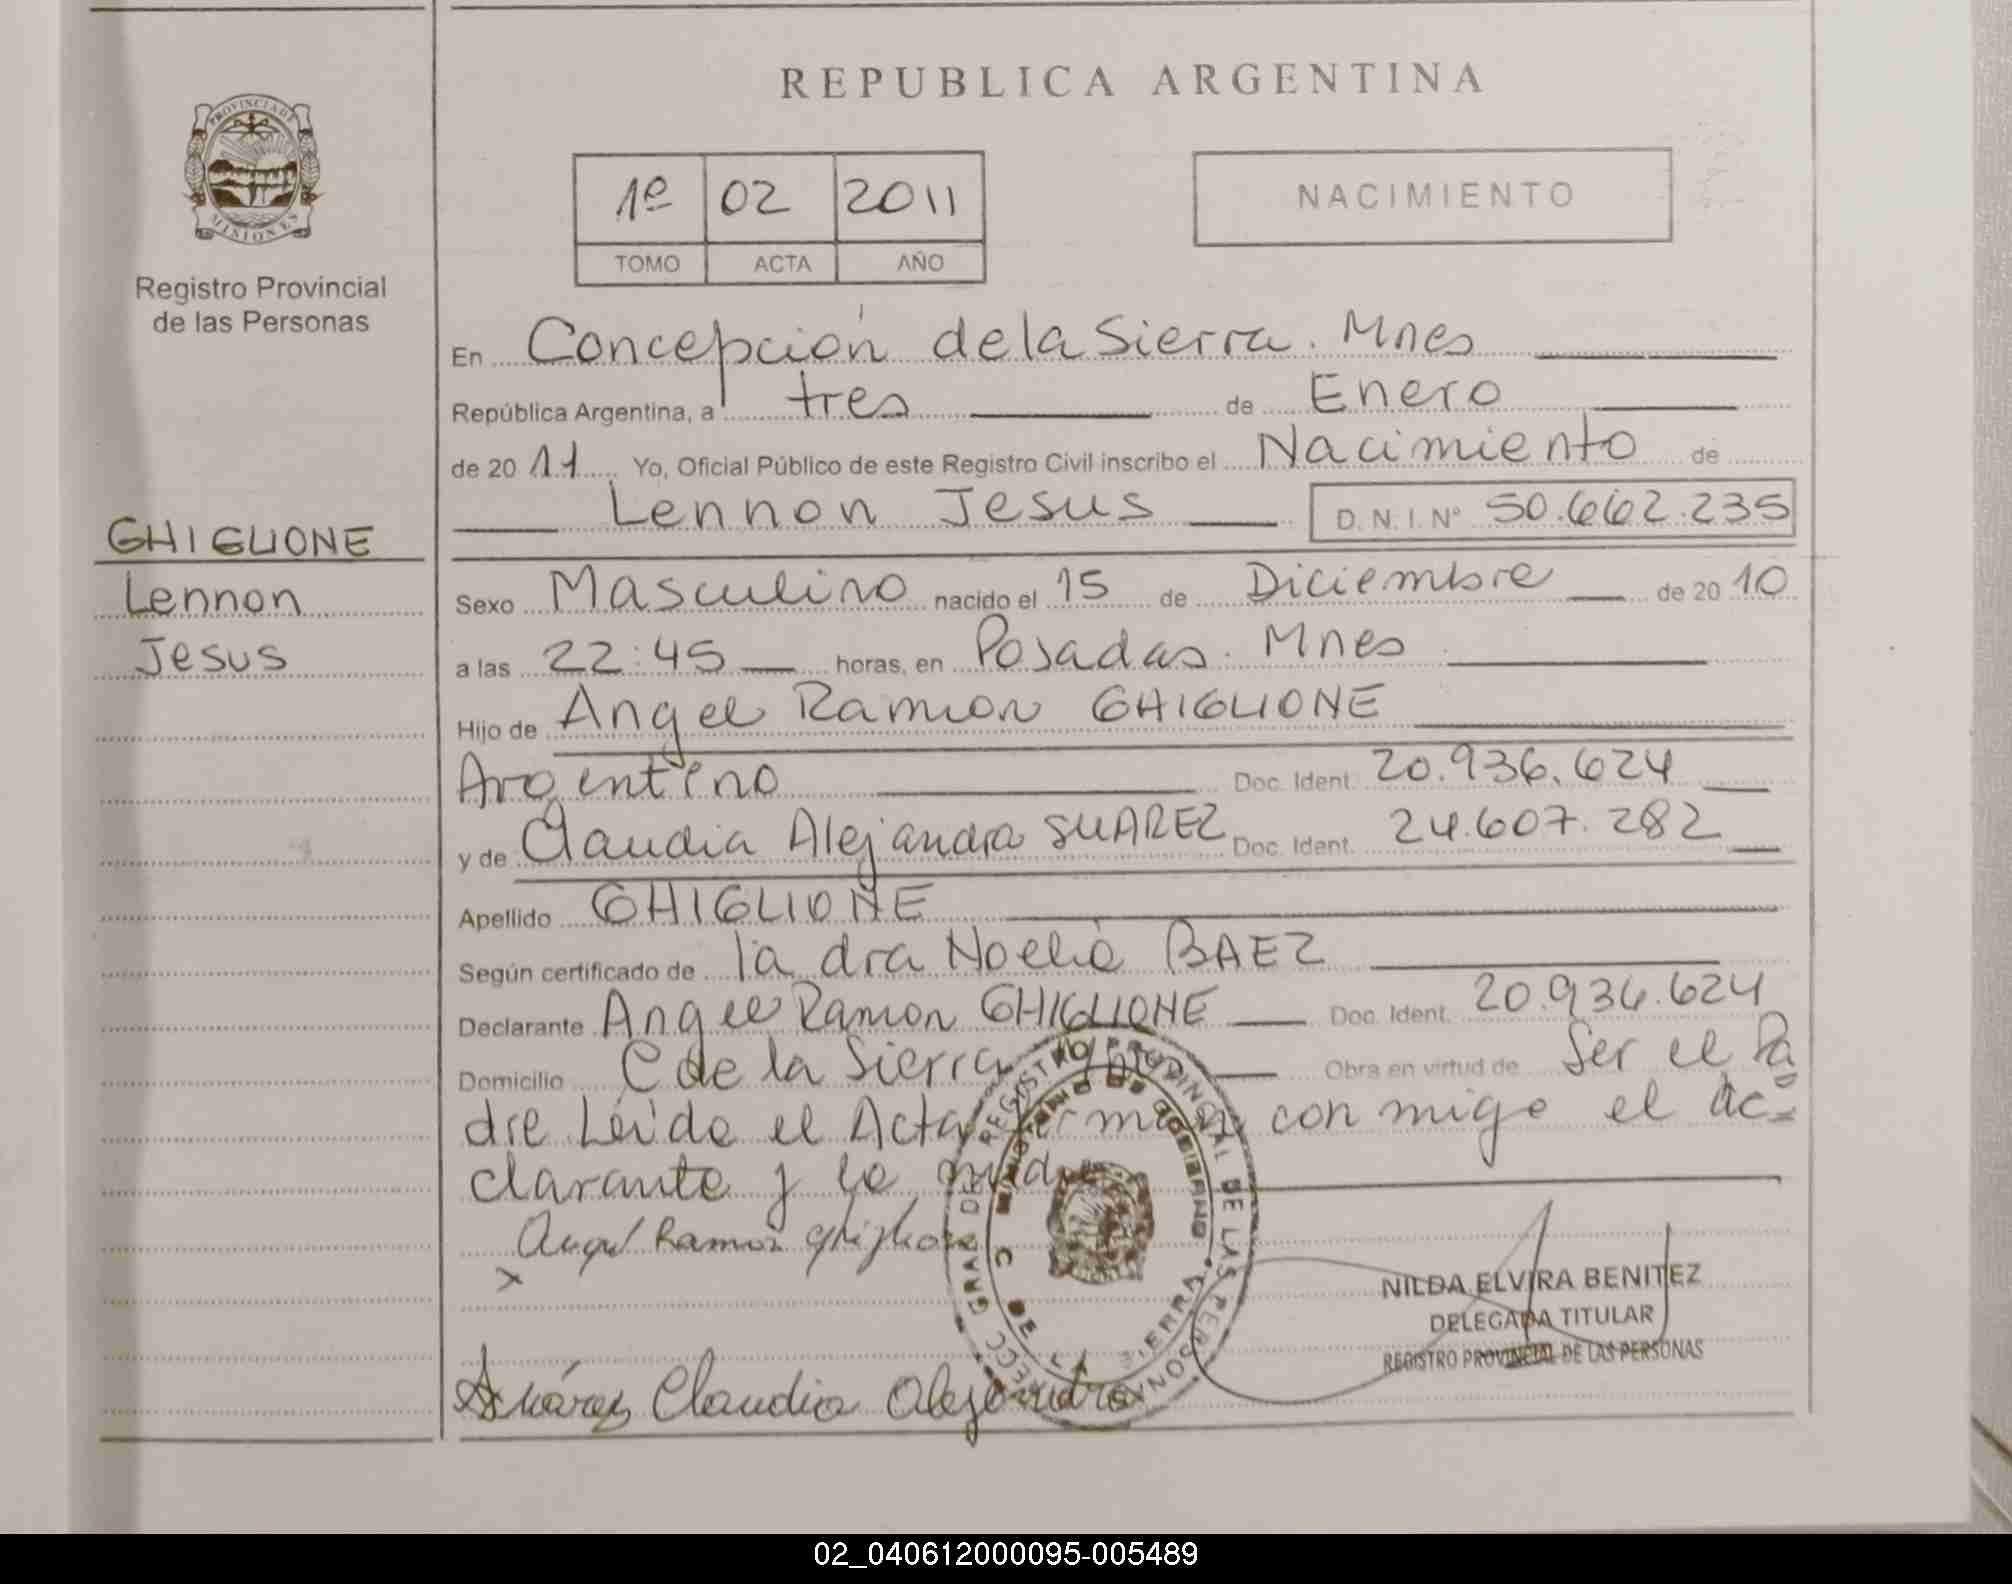 REPUBLICA ARGENTINA
PROVINCIA DE
MISIONES
Registro Provincial
de las Personas
1º 02 2011
TOMO ACTA AÑO
NACIMIENTO
En Concepción de la Sierra. Mnes
República Argentina, a tres de Enero
de 2011 Yo, Oficial Público de este Registro Civil inscribo el Nacimiento de
Lennon Jesus D.N.I. Nº 50.662.235
GHIGLIONE
Lennon
Jesus
Sexo Masculino nacido el 15 de Diciembre de 2010
a las 22:45 horas, en Posadas. Mnes
Hijo de Angel Ramon GHIGLIONE
Argentino Doc. Ident. 20.936.624
y de Claudia Alejandra SUAREZ Doc. Ident. 24.607.282
Apellido GHIGLIONE
Según certificado de la dra Noelia BAEZ
Declarante Angel Ramon GHIGLIONE Doc. Ident. 20.936.624
Domicilio C de la Sierra Obra en virtud de Ser el Pa
dre Leida el Acta firman conmigo el dec=
clarante y la madre
Angel Ramon Ghiglione
Suárez Claudia Alejandra
REGISTRO PROVINCIAL DE LAS PERSONAS
DIRECC GRAL DE
MINISTERIO DE GOBIERNO
C DE LA SIERRA
NILDA ELVIRA BENITEZ
DELEGADA TITULAR
REGISTRO PROVINCIAL DE LAS PERSONAS
02_040612000095-005489